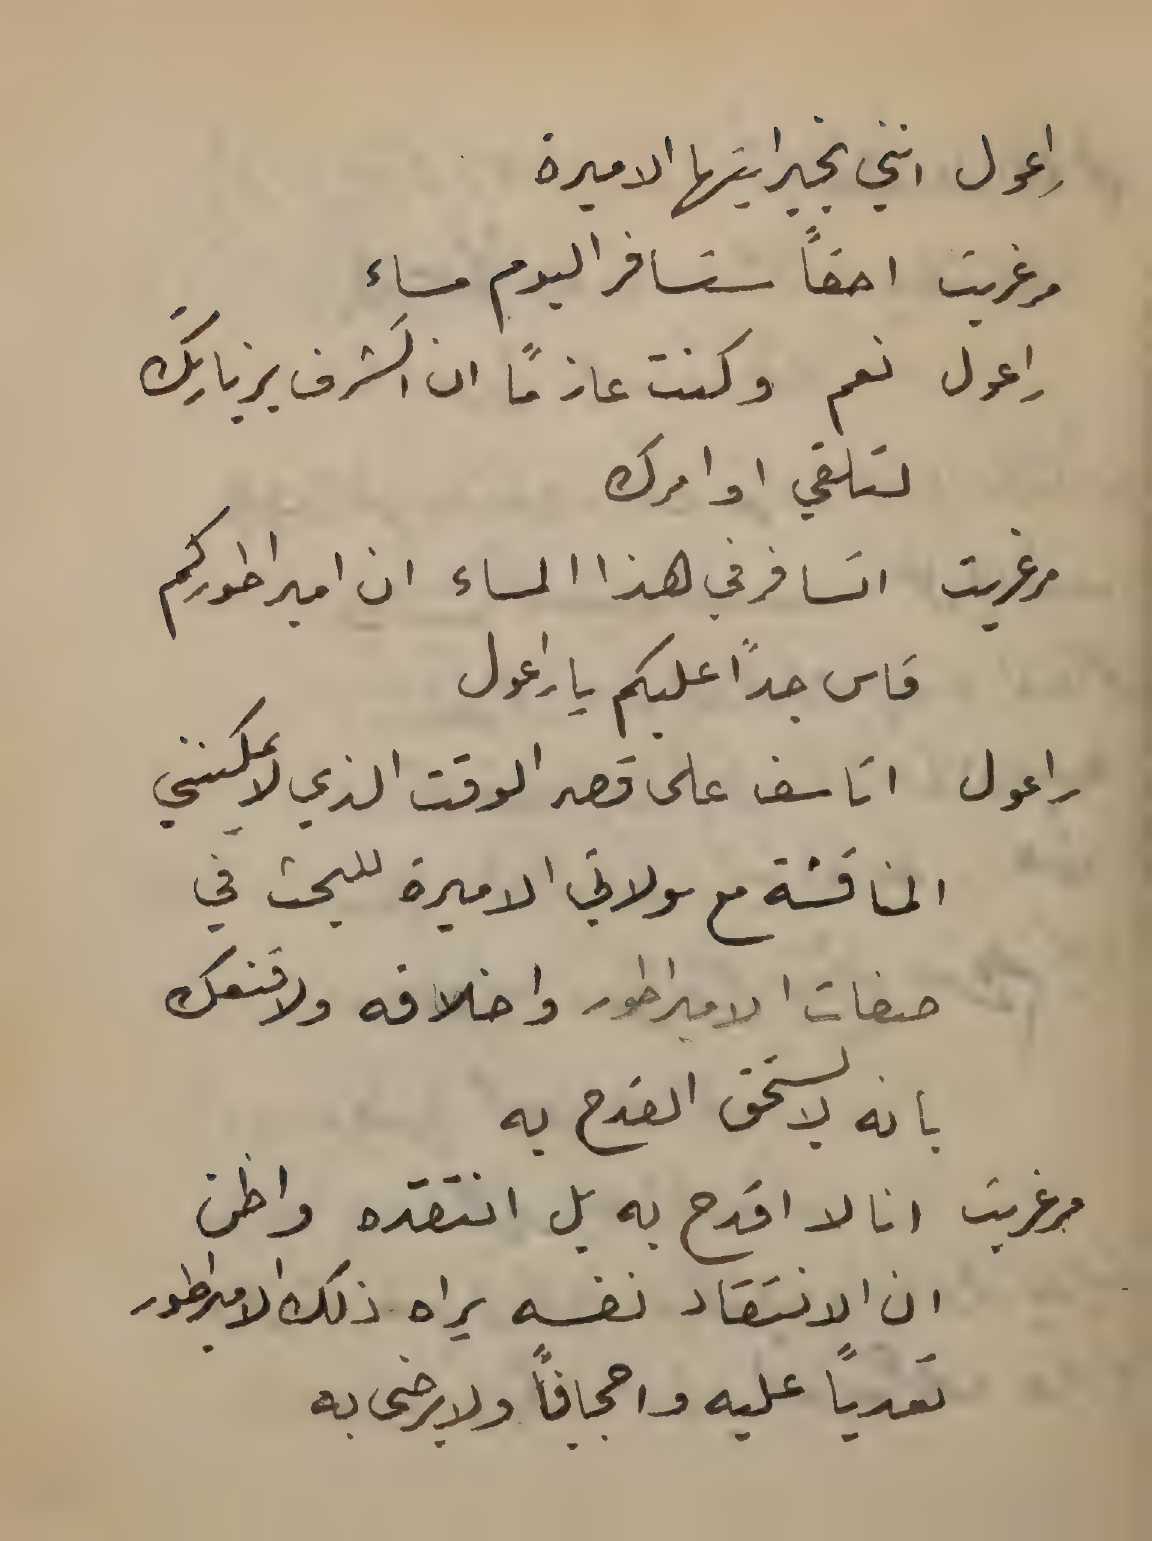 راعول انني بخير ايتها الاميرة
مرغريت احقاً ستسافر اليوم مساء
راعول نعم وكنت عازماً ان اتشرف بزيارتك
لتلقي اوامرك
مرغريت اتسافر في هذا المساء ان امبراطوركم
قاس جداً عليكم يا راعول
راعول اتاسف على قصر الوقت الذي لا يمكنني
المناقشة مع مولاتي الاميرة للبحث في
صفات الامبراطور واخلاقه ولاقنعك
بانه لا يستحق القدح به
مرغريت انا لا اقدح به بل انتقده واظن
ان الانتقاد نفسه يراه ذلك الامبراطور
تعدياً عليه واجحافاً ولا يرضى به